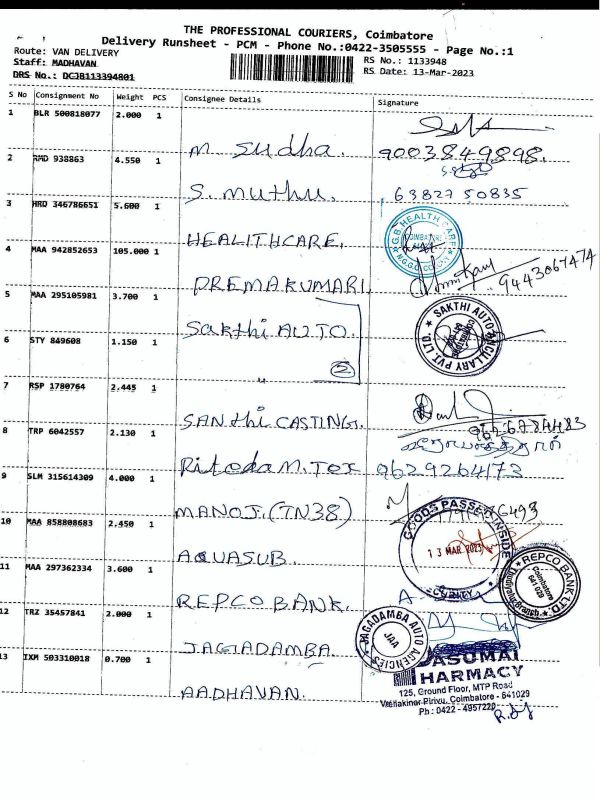 THE PROFESSIONAL COURIERS, Coimbatore
Delivery Runsheet - PCM - Phone No.:0422-3505555 - Page No.:1
Route: VAN DELIVERY
Staff: MADHAVAN
DRS No.: DCJB113394801
RS No.: 1133948
RS Date: 13-Mar-2023
S No Consignment No Weight PCS Consignee Details Signature
1 BLR 500818077 2.000 1
M. Sudha. 9003849898.
2 RMD 938863 4.550 1
S. muthu. 63827 50835
3 HRD 346786651 5.600 1
HEALITHCARE. G.B HEALTH CARE COIMBATORE N.G.G.O COLONY
4 MAA 942852653 105.000 1
PREMAKUMARI 9443067474
5 MAA 295105981 3.700 1
Sakthi AUTO. SAKTHI AUTO ANCILLARY PVT. LTD.
6 STY 849608 1.150 1
2
7 RSP 1780764 2.445 1
" SANthi CASTING. 9626784483
8 TRP 6042557 2.130 1
9629264173
9 SLM 315614309 4.000 1
MANOJ.(TN38)
10 MAA 858808683 2.450 1
AQUASUB. GOODS PASSED INSIDE 13 MAR 2023
11 MAA 297362334 3.600 1
REPCO BANK. REPCO BANK LTD. Coimbatore 641 029
12 TRZ 35457841 2.000 1
JAGADAMBA JAGADAMBA AUTO AGENCIES JAA
13 IXM 503310018 0.700 1
AADHAVAN.
125, Ground Floor, MTP Road
Coimbatore - 641029
Ph : 0422 - 4957220